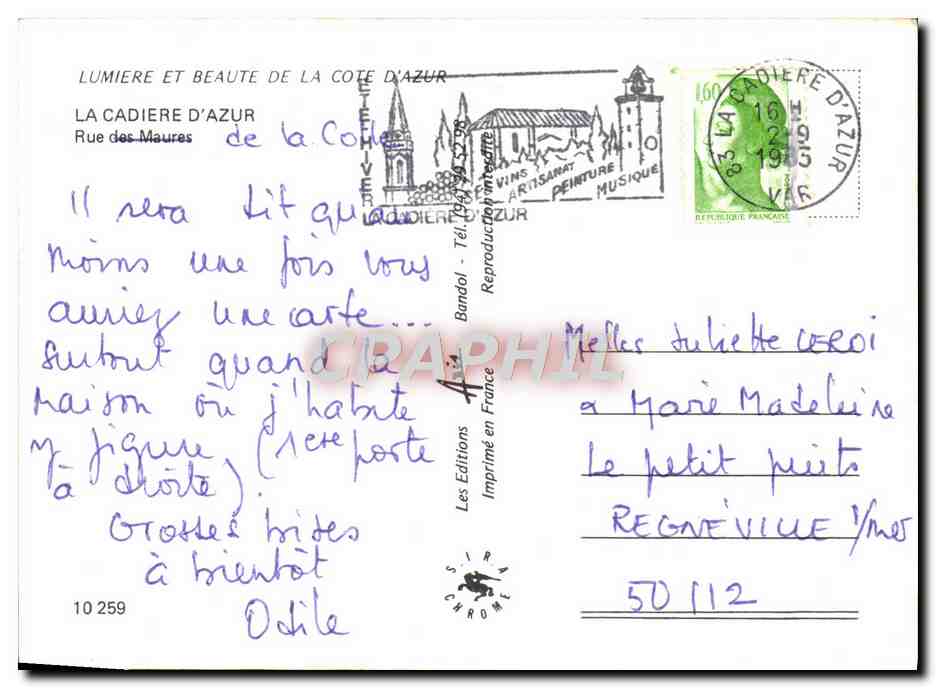 LUMIERE ET BEAUTE DE LA COTE D'AZUR
LA CADIERE D'AZUR
Rue des Maures de la Colle
Il sera dit qu'au
moins une fois vous
auriez une carte...
surtout quand la
maison où j'habite
y figure, (1ere porte
à droite).
Grosses bises
à bientôt
Odile
10 259
ETE HIVER
VINS
ARTISANAT
PEINTURE
MUSIQUE
LA CADIERE D'AZUR
1,60
REPUBLIQUE FRANÇAISE
83 LA CADIERE D'AZUR
16 H
2-9
1985
VAR
Les Editions Aris Bandol - Tél. (94) 29.52.98
Imprimé en France Reproduction interdite
SIRA CHROME
CPAPHIL
Melles Juliette LEROI
& Marie Madeleine
Le petit puits
REGNÉVILLE s/mer
50 112